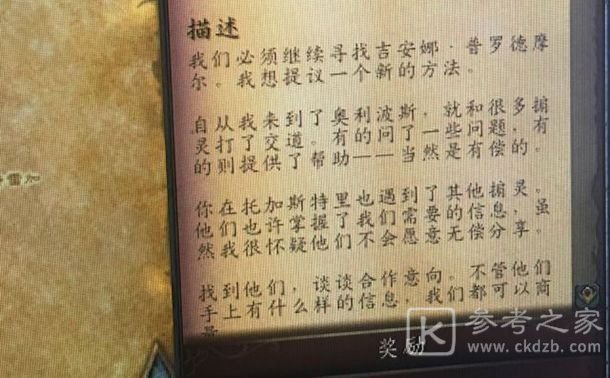 描述
我们必须继续寻找吉安娜·普罗德摩
尔。我想提议一个新的方法。
自从我来到了奥利波斯，就和很多掮
灵打了交道。有的问了一些问题，有
的则提供了帮助——当然是有偿的。
你在托加斯特里也遇到了其他掮灵。
他们也许掌握了我们需要的信息，虽
然我很怀疑他们不会愿意无偿分享。
找到他们，谈谈合作意向。不管他们
手上有什么样的信息，我们都可以商
奖励
雷加
K 参考之家
www.ckdzb.com